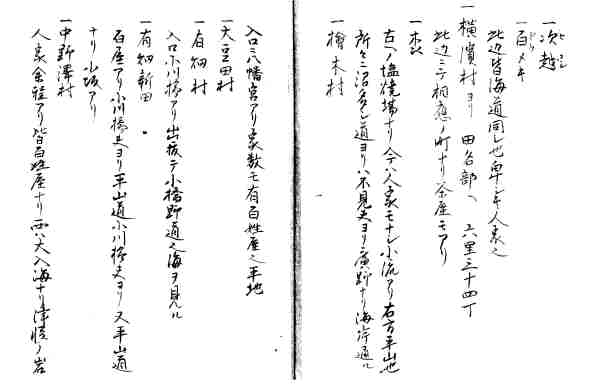 一次越
一百メキ
此辺皆海道同し也卑シキ人家也
一横濱村ヨリ 田名部ヘ 六里三十四丁
此辺ニテ相應ノ町ナリ茶屋モアリ
古ヘノ塩焼場ナリ今ハ人家モナシ小流アリ右方平山也
所々ニ沼多シ道ヨリハ不見夫ヨリ廣野ナリ海岸通ル
一檜木村
入口ニ八幡宮アリ家数モ有百姓屋也平地
一大豆田村
一有畑村
入口小川橋アリ出抜テ小橋野道也海ヲ見ル
一有畑新田
百屋アリ小川橋夫ヨリ平山道小川橋夫ヨリ又平山道
ナリ小坂アリ
一中野澤村
人家余程アリ皆百姓屋ナリ西ハ大入海ナリ津軽ノ岩